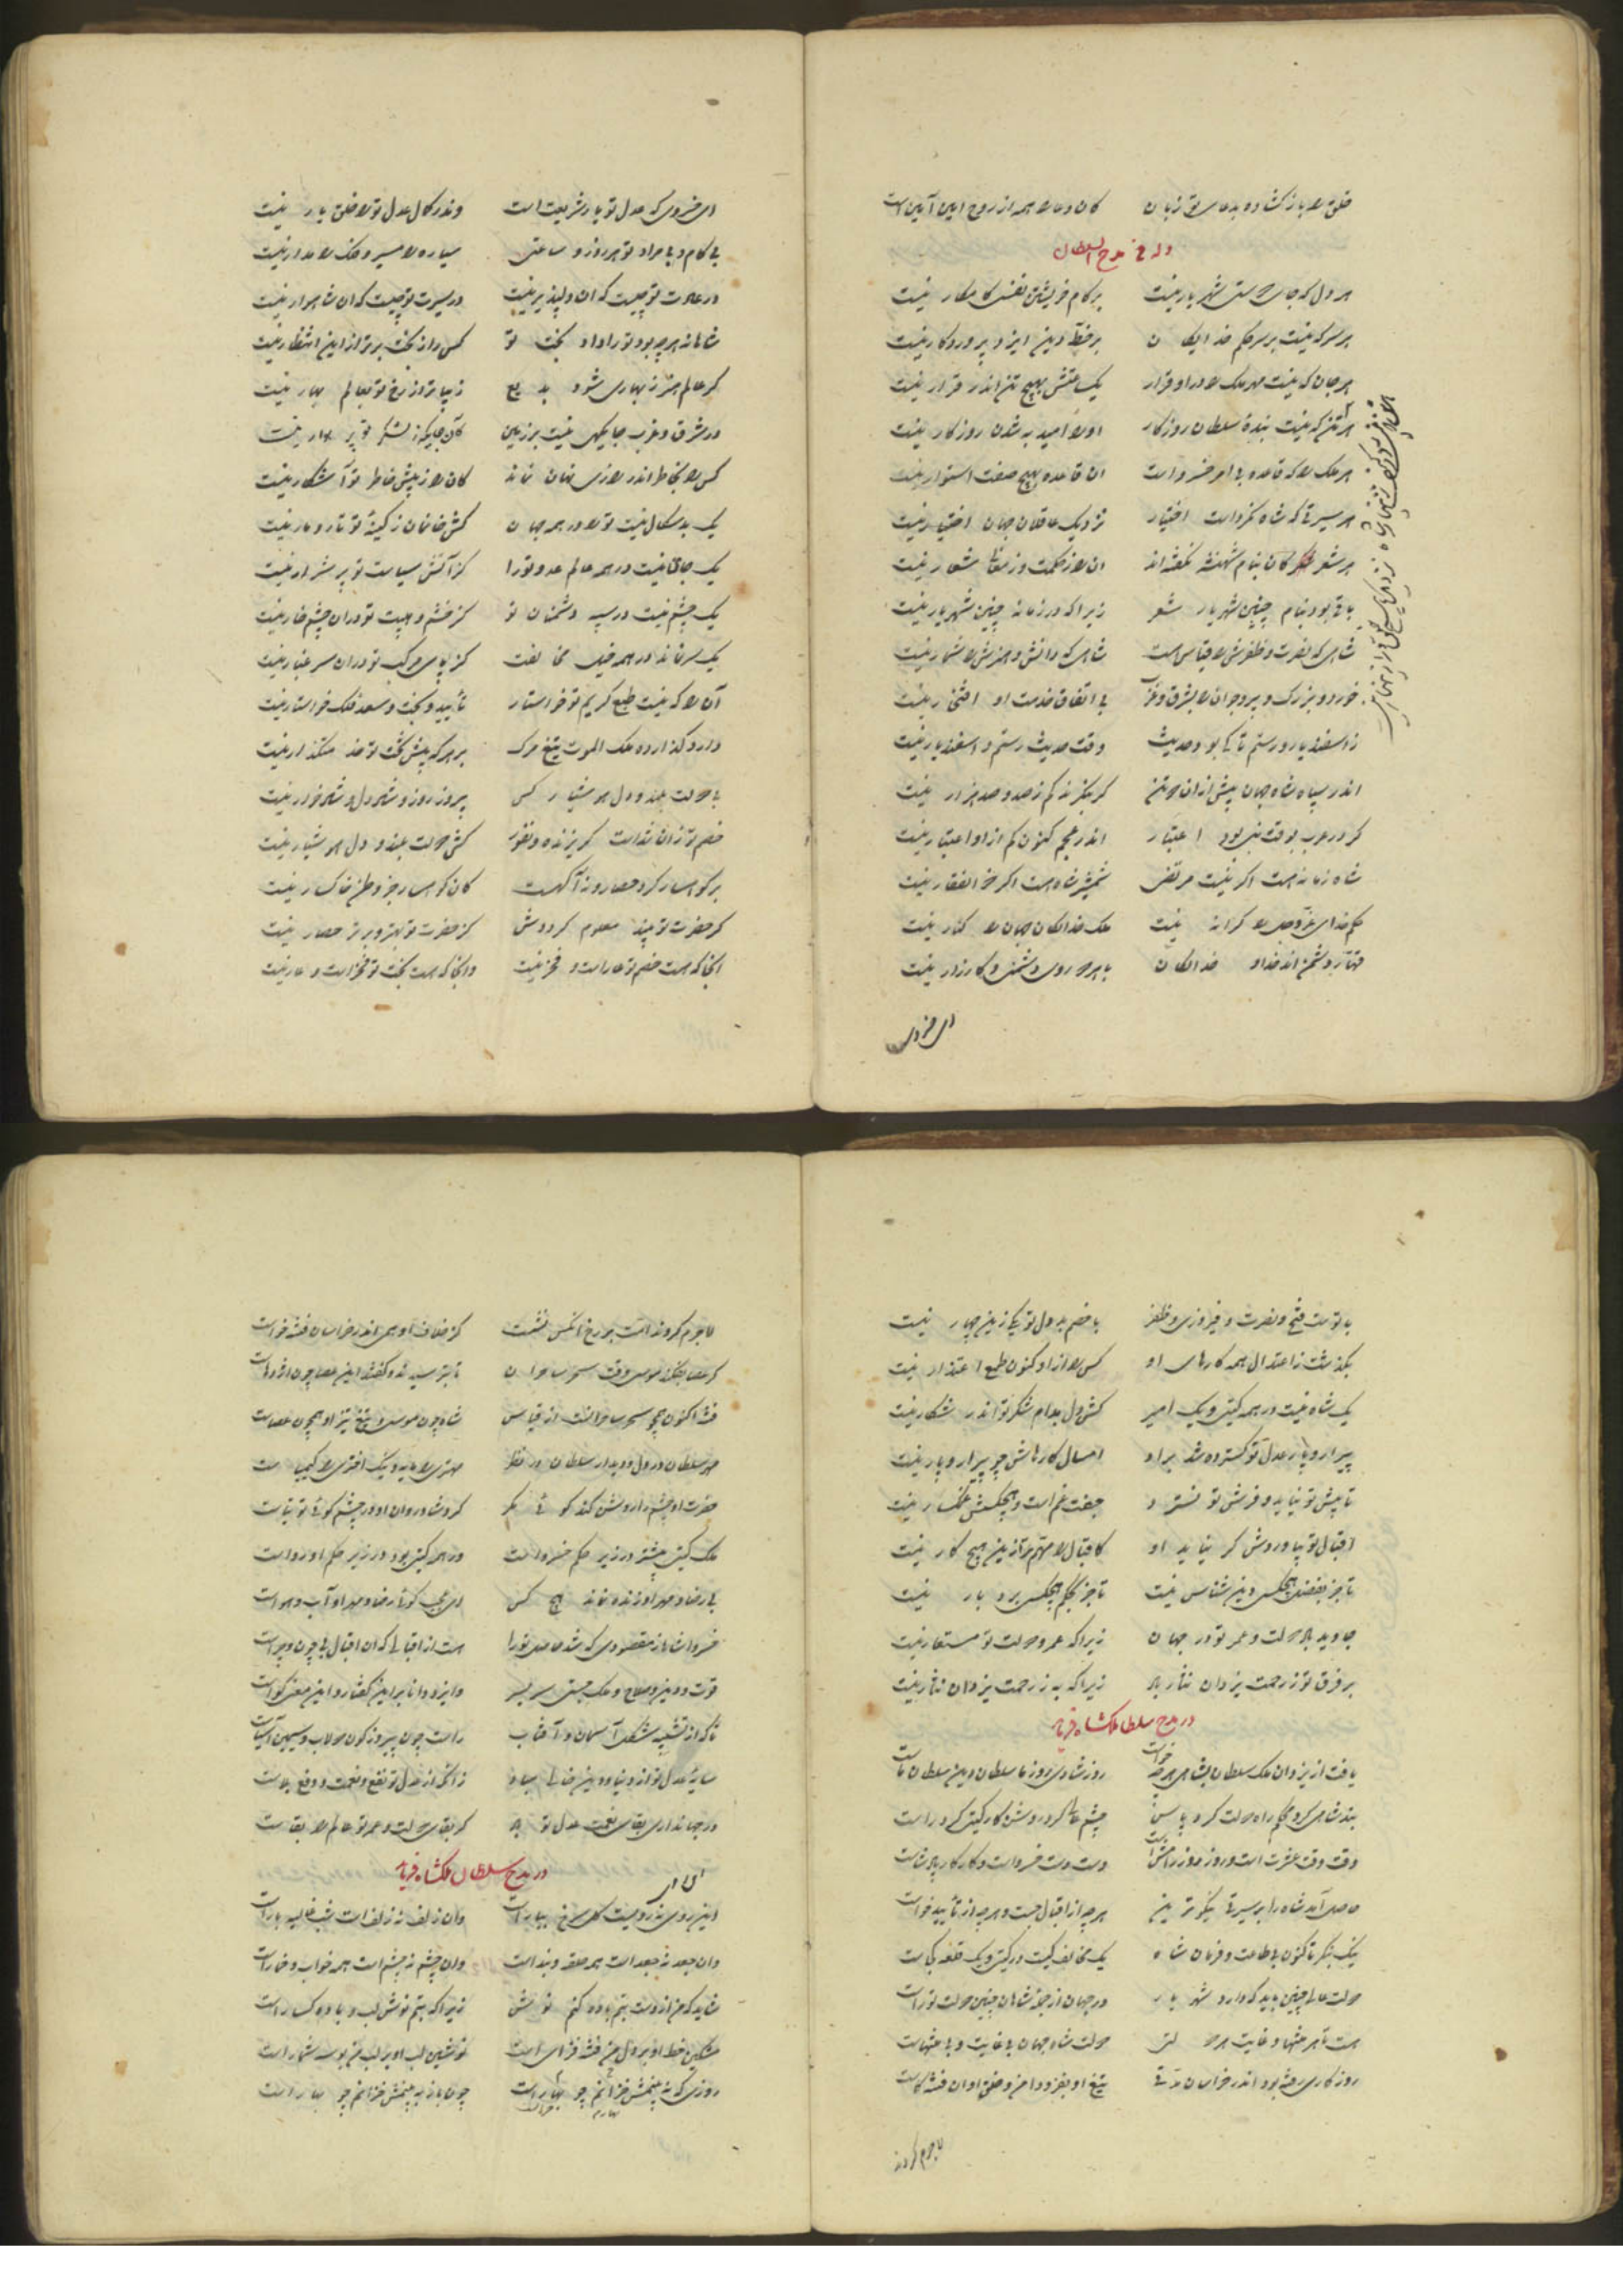 خلق را باز کشاده بدعای تو زبان کان دعا را همه از روح امین آمین است
وله فی مدح السلطان
هر دل که جای دوستی شهریار نیست بر کام خویشتن نفسی کامکار نیست
هر سر که نیست بر سر حکم خدایکان بر خط دین ایزد پروردکار نیست
هر جان که نیست مهر ملک را در او قرار یک ساعتش بهیچ تن اندر قرار نیست
هر تن که نیست بندهٔ سلطان روزکار او را امید به شدن روزکار نیست
هر ملک را که قاعده بی امر خسرو است آن قاعده بهیچ صفت استوار نیست
هر سیرتی که شاه نکرد است اختیار نزدیک عاقلان جهان اختیار نیست
هر شعر کان بنام شهنشه نکفته اند آن را ز حکمت و ز معانی شعار نیست
باقی بود بنام چنین شهریار شعر زیرا که در زمانه چنین شهریار نیست
شاهی که نصرت و ظفرش را قیاس نیست شاهی که دانش و هنرش را شمار نیست
خورد و بزرک و پیر و جوان را بشرق و غرب بی اتفاق خدمت او افتخار نیست
ز اسفندیار و رستم تا کی بود حدیث وقت حدیث رستم و اسفندیار نیست
اندر سپاه شاه جهان بیش از آن دو تن کر بنکرند کم ز صد و صد هزار نیست
کر در عرب بوقت نبی بود اعتبار اندر عجم کنون کم از او اعتبار نیست
شاه زمانه هست اکر نیست مرتضی شمشیر شاه هست اکر ذوالفقار نیست
حکم خدای عز و جل را کرانه نیست ملک خدایکان جهان را کنار نیست
با هر دو روی دشمنی و کارزار نیست
ای خسروی
ای خسروی که عدل تو یار شریعت است وندر کمال عدل تو را خلق یار نیست
بی کام و بی مراد تو هر روز و ساعتی سیاره را مسیر و فلک را مدار نیست
در عادت تو چیست که آن دلپذیر نیست در سیرت تو چیست که آن شاهوار نیست
شاهانه هر چه بود تو را داد بخت تو کس را ز بخت برتر از این انتظار نیست
کر عالم هنر ز بهاری شود بدیع زیباتر از رخ تو بعالم بهار نیست
در شرق و غرب جایکهی نیست بر زمین کان جایکه ز لشکر تو پر سوار نیست
کس را بخاطر اندر رازی نهان نماند کان راز پیش خاطر تو آشکار نیست
یک بدسکال نیست تو را در همه جهان کش خانمان ز کینهٔ تو تار و مار نیست
یک جای نیست در همه عالم عدو تورا کز آتش سیاست تو پر شرار نیست
یک چشم نیست در سپه دشمنان تو کز خشم و هیبت تو در آن چشم خار نیست
یک سر نماند در همه خیل مخالفت کز پای مرکب تو در آن سر غبار نیست
آن را که نیست طبع کریم تو خواستار تأیید و بخت و سعد فلک خواستار نیست
دارد کذارده ملک الموت تیغ مرک بر هر که پیش تخت تو خدمتکذار نیست
با دولت بلند و دل هوشیار کس پیروز روز و شیر دل و شیرخوار نیست
خصم تو زان شداست کریزنده و نفور کش دولت بلند و دل هوشیار نیست
بر کوهسار کرد حصار و نه آکهست کان کوهسار جز وطن خاکسار نیست
کر حضرت تو بیند معلوم کرددش کز حضرت تو بهتر و برتر حصار نیست
آنجا که هست خصم تو عار است و فخر نیست وانجا که هست بخت تو فخر است و عار نیست
با توست فتح و نصرت و فیروزی و ظفر با خصم بددل تو یکی زین چهار نیست
بکذشت ز اعتدال همه کارهای او کس را از او کنون طمع اعتذار نیست
یک شاه نیست در همه کیتی و یک امیر کش دل بدام شکر تو اندر شکار نیست
پیرار و پار عدل تو کسترده شد بر او امسال کارهاش چو پیرار و پار نیست
تا پیش تو نیاید و فرش تو نسپرد جفت غم است و هیچکسش غمکسار نیست
اقبال تو بیاوردش کر نیاید او کاقبال را مهم تر از این هیچ کار نیست
تا جز بفضل هیچکس دین شناس نیست تا جز بحکم هیچکس بردبار نیست
جاوید باد دولت و عمر تو در جهان زیرا که عمر و دولت تو مستعار نیست
بر فرق تو ز رحمت یزدان نثار باد زیرا که به ز رحمت یزدان نثار نیست
در مدح سلطان ملکشاه فرماید
یافت از یزدان ملک سلطان بشاهی هر چه خواست روز شادی روز ما سلطان دین سلطان ماست
بند شاهی کرد محکم راه دولت کرد پاس چشم عالم کرد روشن کار کیتی کرد راست
وقت وقت عشرت است و روز روز رامش است دست دست خسرو است و کار کار پادشاست
حاصل آمد شاه را بر سیرتی نیکوترین هر چه از اقبال جست و هر چه از تأیید خواست
نیک بنکر تا کنون بی طاعت و فرمان شاه یک مخالف کیست در کیتی و یک قلعه کجاست
دولت عالی چنین باید که دارد شهریار در جهان از جمله شاهان چنین دولت توراست
هست تا هر منتها و غایت هر دولتی دولت شاه جهان بی غایت و بی منتهاست
روزکاری رفته بود اندر خراسان مدتی تیغ او بفزود امن و خلق او آن فتنه کاست
لاجرم کردند
لاجرم کردند است بر رخ آنکس نشست کز خلاف او همی اندر خراسان فتنه خواست
کر عصا بفکند موسی وقت سحر ساحران تا بترسیدند و کفتند این عصا چون اژدهاست
فتنه اکنون همچو سحر ساحرانست از قیاس شاه چون موسی و تیغ تیز او همچون عصاست
مهر سلطان در دل و دیدار سلطان در نظر مهتری را مایه و نیک اختری را کیمیاست
حضرت او چشم را روشن کند کوئی مکر کرد شادروان او در چشم کوئی توتیاست
ملک کیتی بیشتر در زیر حکم خسرواست ور همه کیتی بود در زیر حکم او رواست
بی رضا و مهر او زنده نماند هیچ کس ای عجب کوئی رضا و مهر او آب و هواست
خسروا شاها ز مقصودی که شد حاصل تورا هست از اقبالی که آن اقبال بی چون و چراست
قوت و دین و صلاح و ملک جستی سر بسر وایزد دانا بر این کفتار و این معنی کواست
تا که از تشبیه شکل آسمان و آفتاب راست چون پیروزه کون دولاب و سیمین آسیاست
سایهٔ عدل تو از دنیا و دین خالی مباد زانکه از عدل تو نفع و نعمت و دفع بلاست
در جهانداری بقای نعمت عدل تو باد کز بقای دولت و عمر تو عالم را بقاست
در مدح سلطان ملکشاه فرماید
این روی نه رویست کل سرخ ببار است وان زلف نه زلف است شب غالیه بار است
وان جعد نه جعد است همه حلقه و بند است وان چشم نه چشم است همه خواب و خمار است
شاید که من از دست بتم باده کنم نوش زیرا که بتم نوش لب و باده کسار است
مشکین خط او بر دل من فتنه فزای است نوشین لب او بر لب من بوسه شمار است
روزی که نه بینمش خزانم چو بهار است چون باز به بینمش خزانم چو بهار است